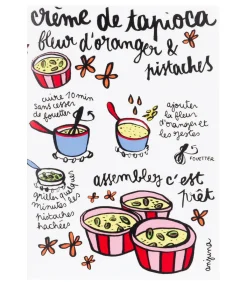 crème de tapioca
fleur d'oranger &
pistaches
cuire 10 min
sans cesser
de fouetter
ajouter
la fleur
d'oranger et
les zestes
FOUETTER
griller quelques
minutes les
pistaches
hachées
assemblez c'est
prêt